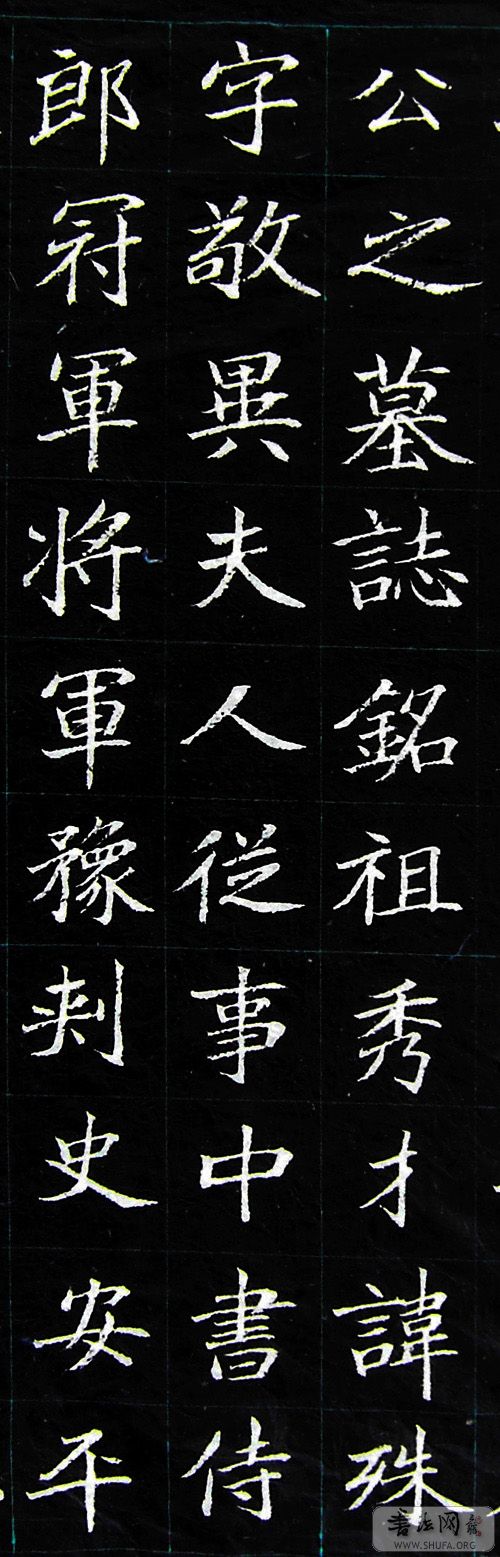 公之墓誌銘祖秀才諱殊
字敬異夫人從事中書侍
郎冠軍將軍豫刾史安平
書法网
WWW.SHUFA.ORG